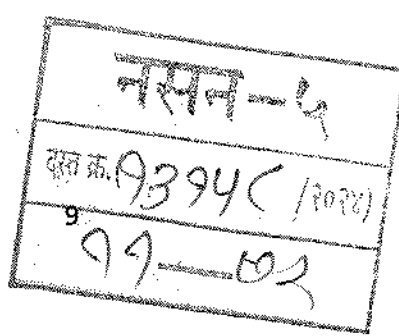 नसन-५
दस्त क्र. (१३१५८ /२०२४)
9
११-७२